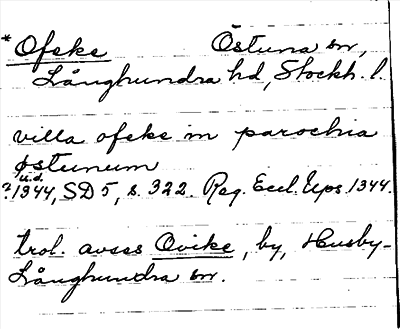 * Ofske Östuna sn,
Långhundra hd, Stockh. l.
villa ofske in parochia
østunum
u.d.
?1344, SD 5, s. 322. Reg. Eccl. Ups. 1344.
trol. avses Ovike, by, Husby-
Långhundra sn.